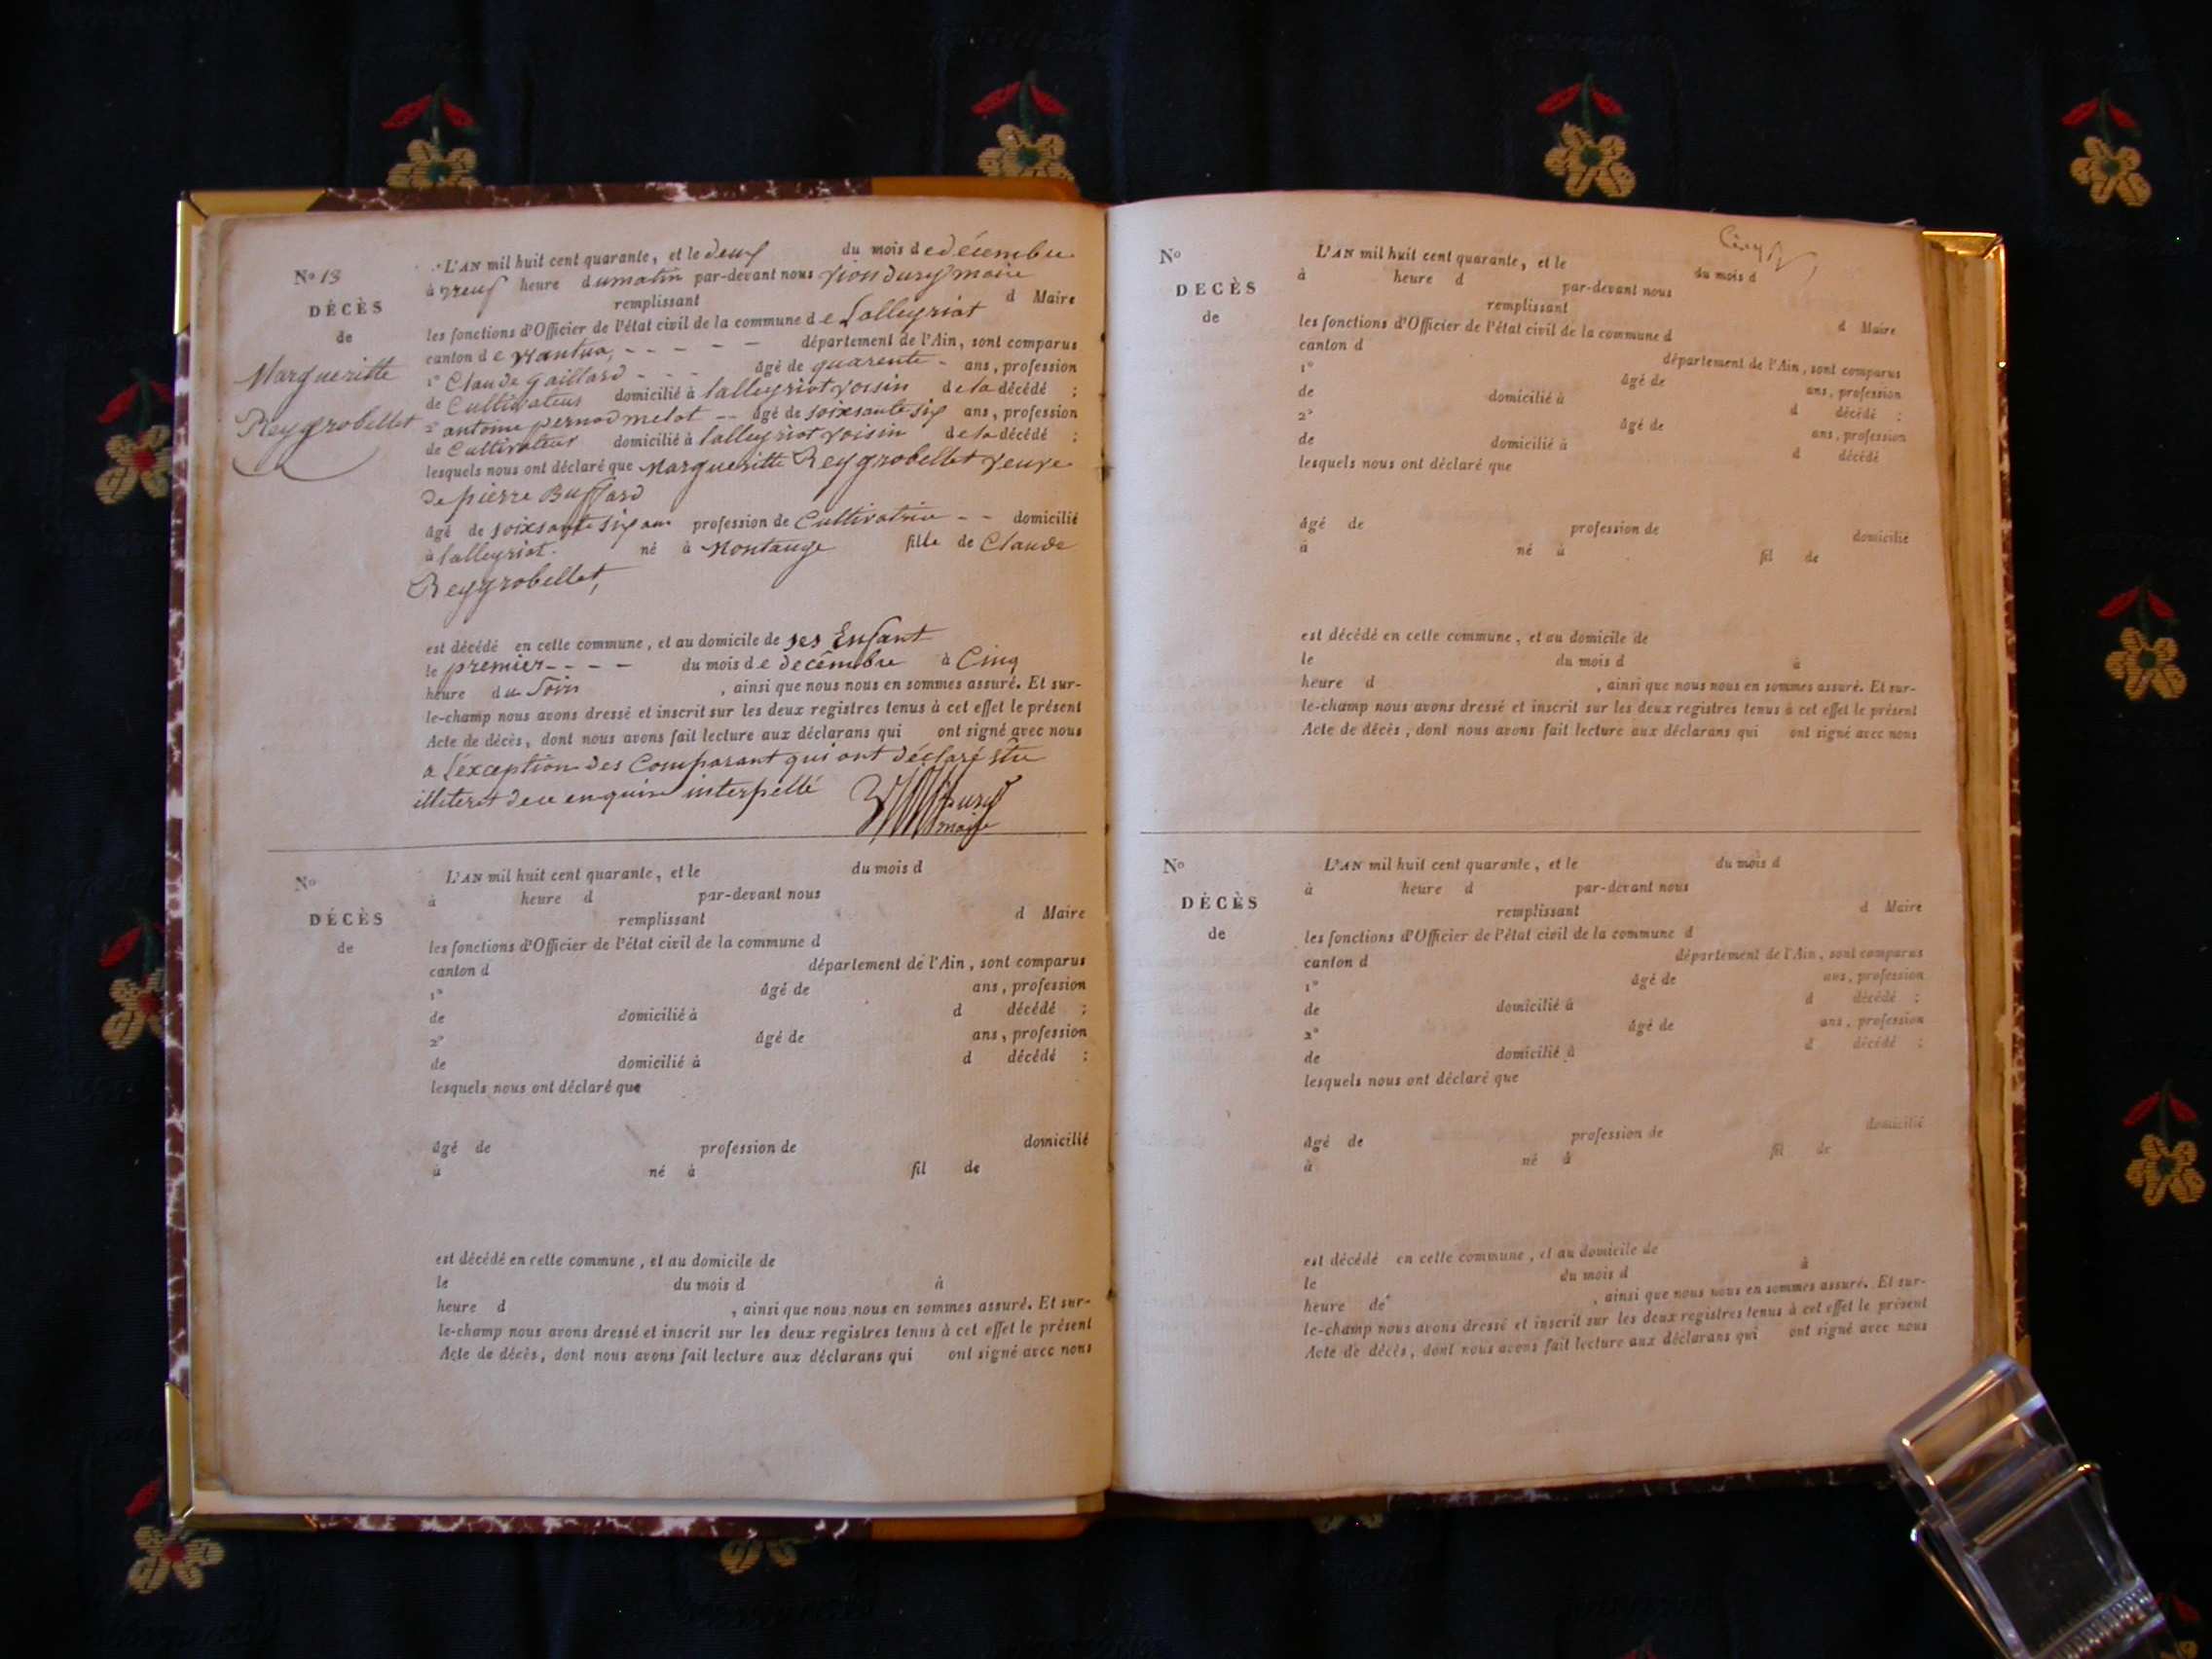 N° 13
DÉCÈS
de
Margueritte
Reygrobellet
L'AN mil huit cent quarante, et le deux du mois de décembre
à neuf heure du matin par-devant nous vion dury maire
remplissant d Maire
les fonctions d'Officier de l'état civil de la commune de Lalleyriat
canton de Nantua, - - - - - département de l'Ain, sont comparus
1° Claude gaillard - - - âgé de quarente - ans, profession
de Cultivateur domicilié à lalleyriat voisin de la décédé ;
2° antoine pernod melot -- âgé de soixsante six ans, profession
de Cultivateur domicilié à lalleyriat voisin de la décédé ;
lesquels nous ont déclaré que Margueritte Reygrobellet veuve
de pierre Buffard
âgé de soixsante six ans profession de Cultivatrice - - domicilié
à lalleyriat. né à Montange fille de Claude
Reygrobellet,
est décédé en cette commune, et au domicile de ses Enfant
le premier - - - - du mois de décembre à Cinq
heure du Soir , ainsi que nous nous en sommes assuré. Et sur-
le-champ nous avons dressé et inscrit sur les deux registres tenus à cet effet le présent
Acte de décès, dont nous avons fait lecture aux déclarans qui ont signé avec nous
a l'éxception des Comparant qui ont déclaré être
illiteret de ce enquire interpellé
maire
N°
DÉCÈS
de
L'AN mil huit cent quarante, et le du mois d
à heure d par-devant nous
remplissant d Maire
les fonctions d'Officier de l'état civil de la commune d
canton d département de l'Ain, sont comparus
1° âgé de ans, profession
de domicilié à d décédé ;
2° âgé de ans, profession
de domicilié à d décédé ;
lesquels nous ont déclaré que
âgé de profession de domicilié
à né à fil de
est décédé en cette commune, et au domicile de
le du mois d à
heure d , ainsi que nous nous en sommes assuré. Et sur-
le-champ nous avons dressé et inscrit sur les deux registres tenus à cet effet le présent
Acte de décès, dont nous avons fait lecture aux déclarans qui ont signé avec nous
N°
DECÈS
de
L'AN mil huit cent quarante, et le du mois d
à heure d par-devant nous
remplissant d Maire
les fonctions d'Officier de l'état civil de la commune d
canton d département de l'Ain, sont comparus
1° âgé de ans, profession
de domicilié à d décédé ;
2° âgé de ans, profession
de domicilié à d décédé
lesquels nous ont déclaré que
âgé de profession de domicilié
à né à fil de
est décédé en cette commune, et au domicile de
le du mois d à
heure d , ainsi que nous nous en sommes assuré. Et sur-
le-champ nous avons dressé et inscrit sur les deux registres tenus à cet effet le présent
Acte de décès, dont nous avons fait lecture aux déclarans qui ont signé avec nous
N°
DÉCÈS
de
L'AN mil huit cent quarante, et le du mois d
à heure d par-devant nous
remplissant d Maire
les fonctions d'Officier de l'état civil de la commune d
canton d département de l'Ain, sont comparus
1° âgé de ans, profession
de domicilié à d décédé ;
2° âgé de ans, profession
de domicilié à d décédé ;
lesquels nous ont déclaré que
âgé de profession de domicilié
à né à fil de
est décédé en cette commune, et au domicile de
le du mois d à
heure de , ainsi que nous nous en sommes assuré. Et sur-
le-champ nous avons dressé et inscrit sur les deux registres tenus à cet effet le présent
Acte de décès, dont nous avons fait lecture aux déclarans qui ont signé avec nous